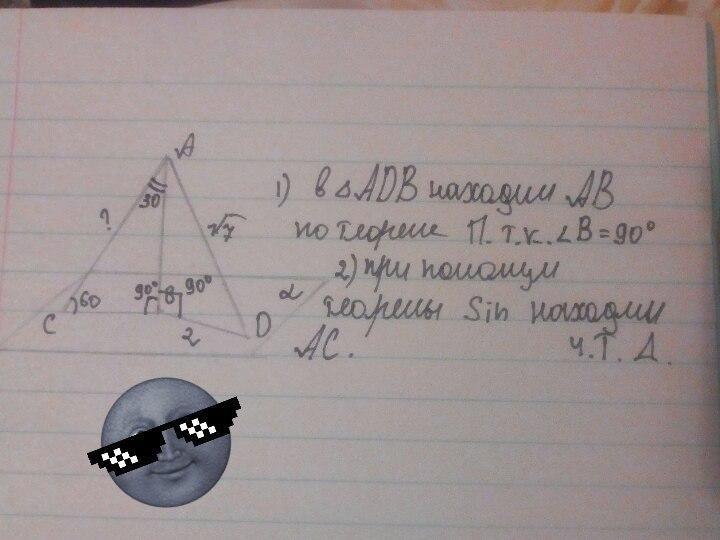 A
30
?
√7
90° B 90°
60
C
2
D
α
1) в △ADB находим AB
по теореме П. т.к. ∠B=90°
2) при помощи
теоремы Sin находим
AC. ч.т.д.